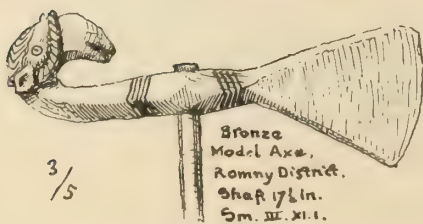 3/5
Bronze
Model Axe,
Romny District.
Shaft 17½ in.
Sm. III. XI. 1.